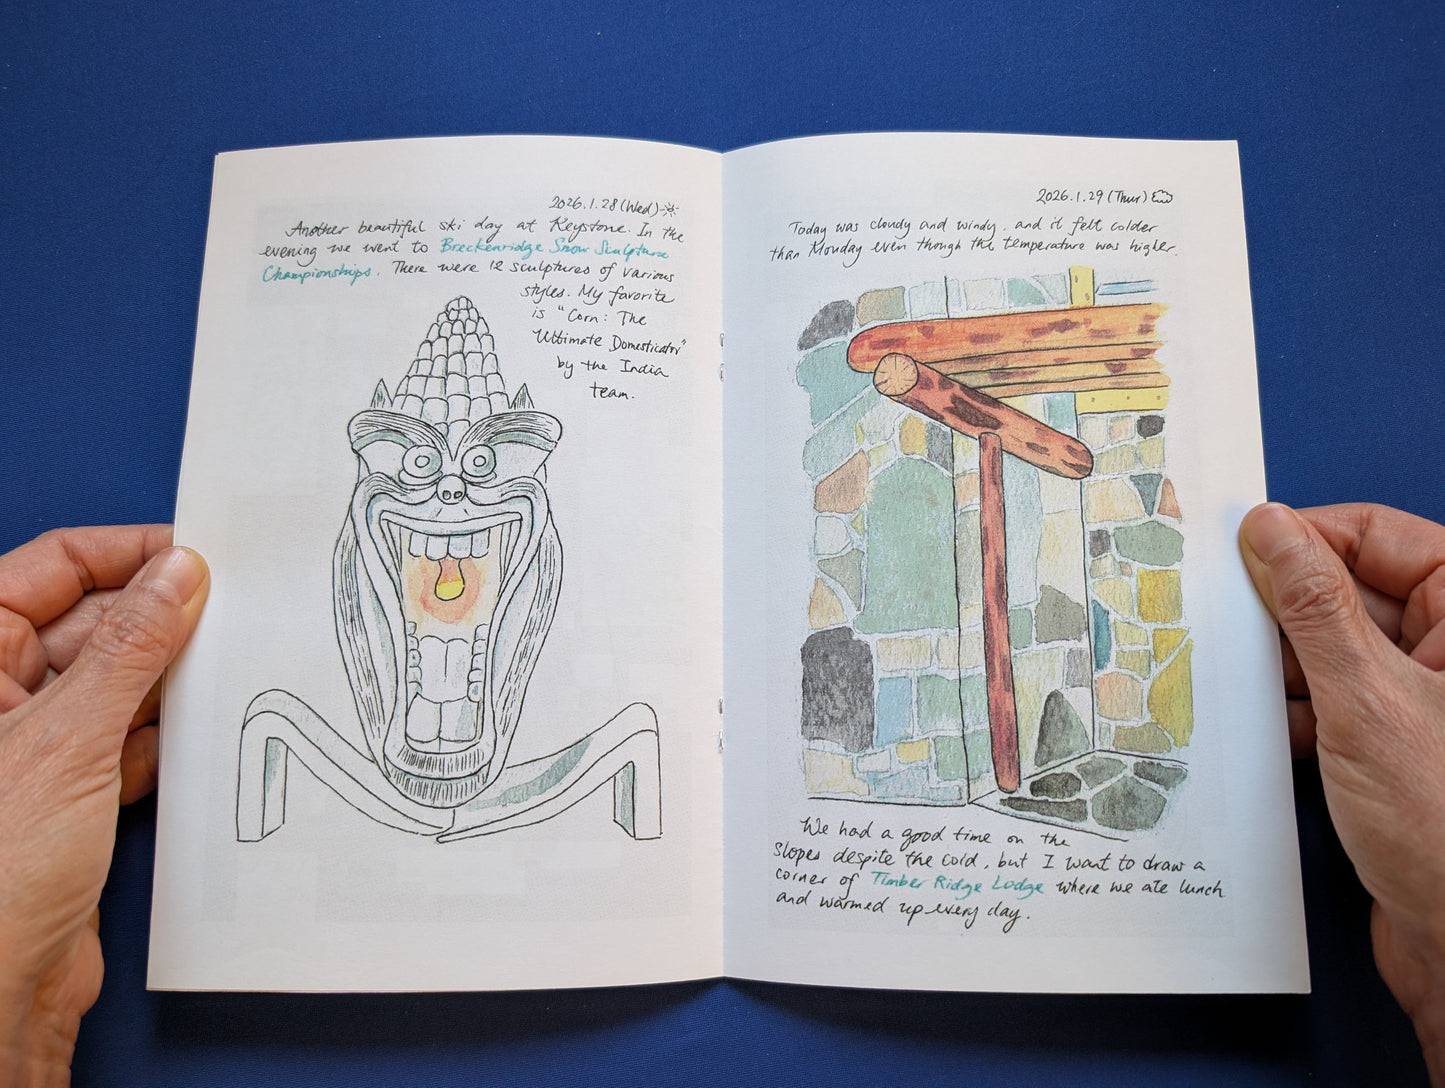 2026.1.28 (Wed)
Another beautiful ski day at Keystone. In the
evening we went to Breckenridge Snow Sculpture
Championships. There were 12 sculptures of various
styles. My favorite
is "Corn: The
Ultimate Domesticator"
by the India
team.
2026.1.29 (Thur)
Today was cloudy and windy, and it felt colder
than Monday even though the temperature was higher.
We had a good time on the
slopes despite the cold, but I want to draw a
corner of Timber Ridge Lodge where we ate lunch
and warmed up every day.